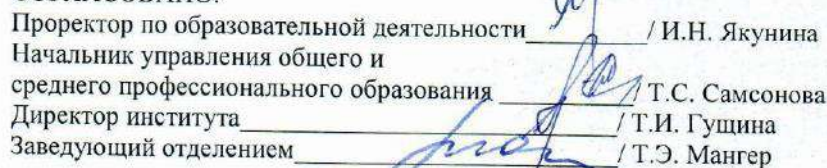 Проректор по образовательной деятельности__________/ И.Н. Якунина
Начальник управления общего и
среднего профессионального образования __________/ Т.С. Самсонова
Директор института____________________________/ Т.И. Гущина
Заведующий отделением________________________/ Т.Э. Мангер